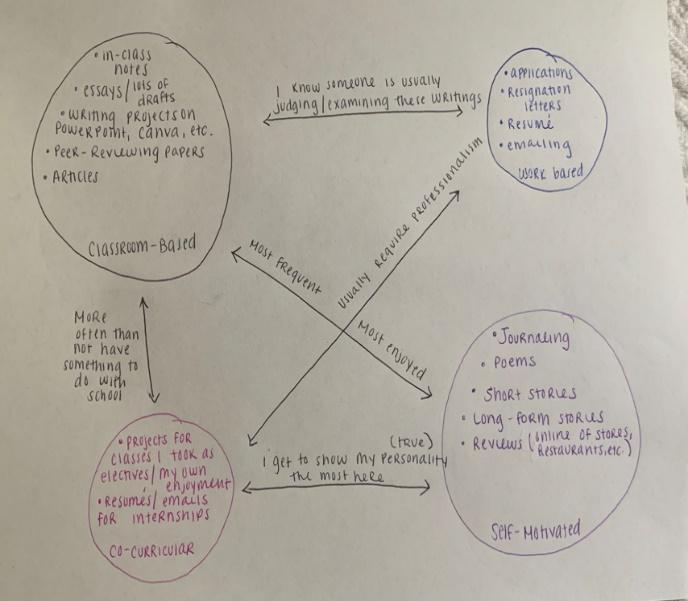 • in-class
notes
• essays/lots of
drafts
• writing projects on
PowerPoint, Canva, etc.
• Peer-Reviewing papers
• Articles
Classroom-Based
I know someone is usually
judging/examining these writings
• applications
• Resignation
letters
• Resumé
• emailing
Work based
Most frequent
Most enjoyed
Usually require professionalism
More
often than
not have
something to
do with
school
• Journaling
• Poems
• Short stories
• Long-form stories
• Reviews (online of stores,
Restaurants, etc.)
Self-Motivated
(true)
I get to show my personality
the most here
• Projects for
classes I took as
electives/my own
enjoyment
• Resumés/emails
for internships
Co-curricular